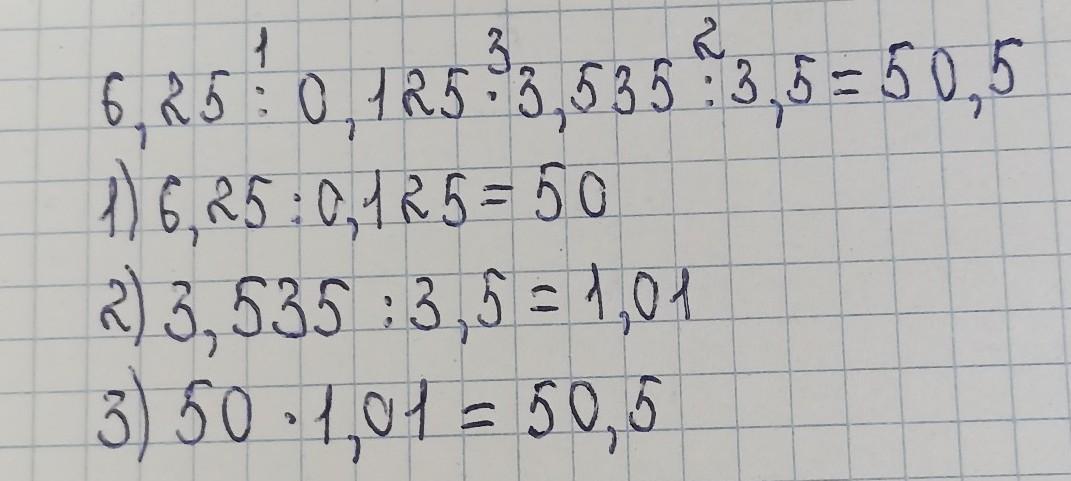 1 3 2
6,25 : 0,125 · 3,535 : 3,5 = 50,5
1) 6,25 : 0,125 = 50
2) 3,535 : 3,5 = 1,01
3) 50 · 1,01 = 50,5